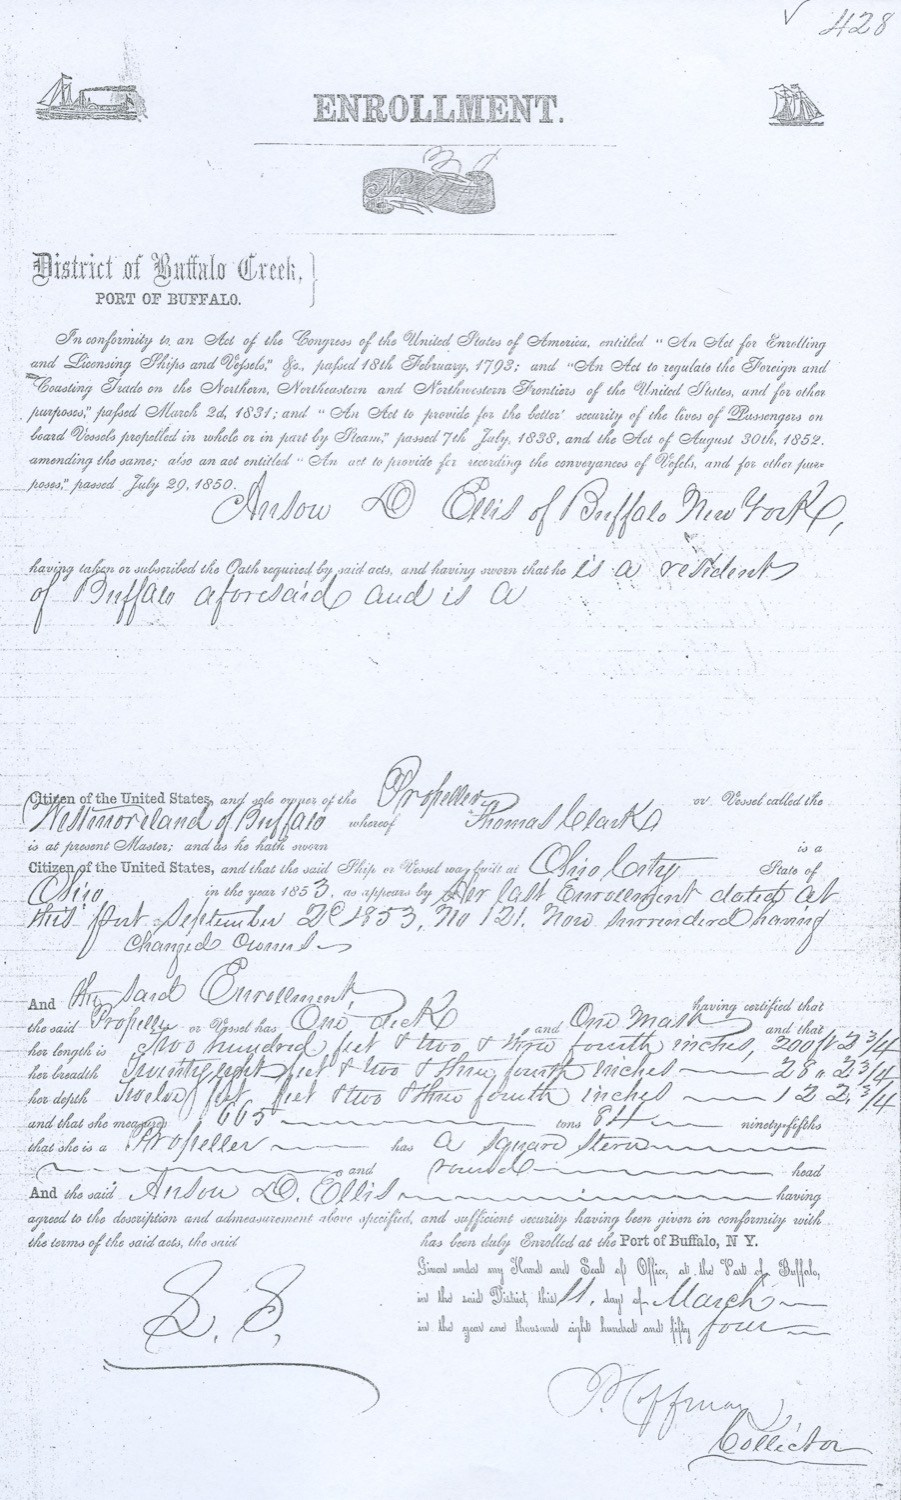 428
ENROLLMENT.
No
District of Buffalo Creek,
PORT OF BUFFALO.
In conformity to an Act of the Congress of the United States of America, entitled "An Act for Enrolling
and Licensing Ships and Vessels," &c., passed 18th February, 1793; and "An Act to regulate the Foreign and
Coasting Trade on the Northern, Northeastern and Northwestern Frontiers of the United States, and for other
purposes," passed March 2d, 1831; and "An Act to provide for the better security of the lives of Passengers on
board Vessels propelled in whole or in part by Steam," passed 7th July, 1838, and the Act of August 30th, 1852.
amending the same; also an act entitled "An act to provide for recording the conveyances of Vessels, and for other pur-
poses," passed July 29, 1850.
Anson D Ellis of Buffalo New York,
having taken or subscribed the Oath required by said acts, and having sworn that he is a resident
of Buffalo aforesaid and is a
Citizen of the United States, and sole owner of the Propeller or Vessel called the
Westmoreland of Buffalo whereof Thomas Clark
is at present Master; and as he hath sworn is a
Citizen of the United States, and that the said Ship or Vessel was built at Ohio City State of
Ohio in the year 1853. as appears by her last Enrollment dated at
this port September 2d 1853, No 121. Now surrendered having
changed owners
And the said Enrollment, having certified that
the said Propeller or Vessel has One deck and One Mast and that
her length is Two hundred feet & two & three fourth inches, 200ft 2 3/4
her breadth Twenty eight feet & two & three fourth inches 28 " 2 3/4
her depth Twelve feet & two & three fourth inches 12 2 3/4
and that she measures 665 tons 84 ninety-fifths
that she is a Propeller has a square stern
and round head
And the said Anson D. Ellis having
agreed to the description and admeasurement above specified, and sufficient security having been given in conformity with
the terms of the said acts, the said has been duly Enrolled at the Port of Buffalo, N Y.
Given under my Hand and Seal of Office, at the Port of Buffalo,
in the said District, this 11. day of March
in the year one thousand eight hundred and fifty four
L. S.
Collector